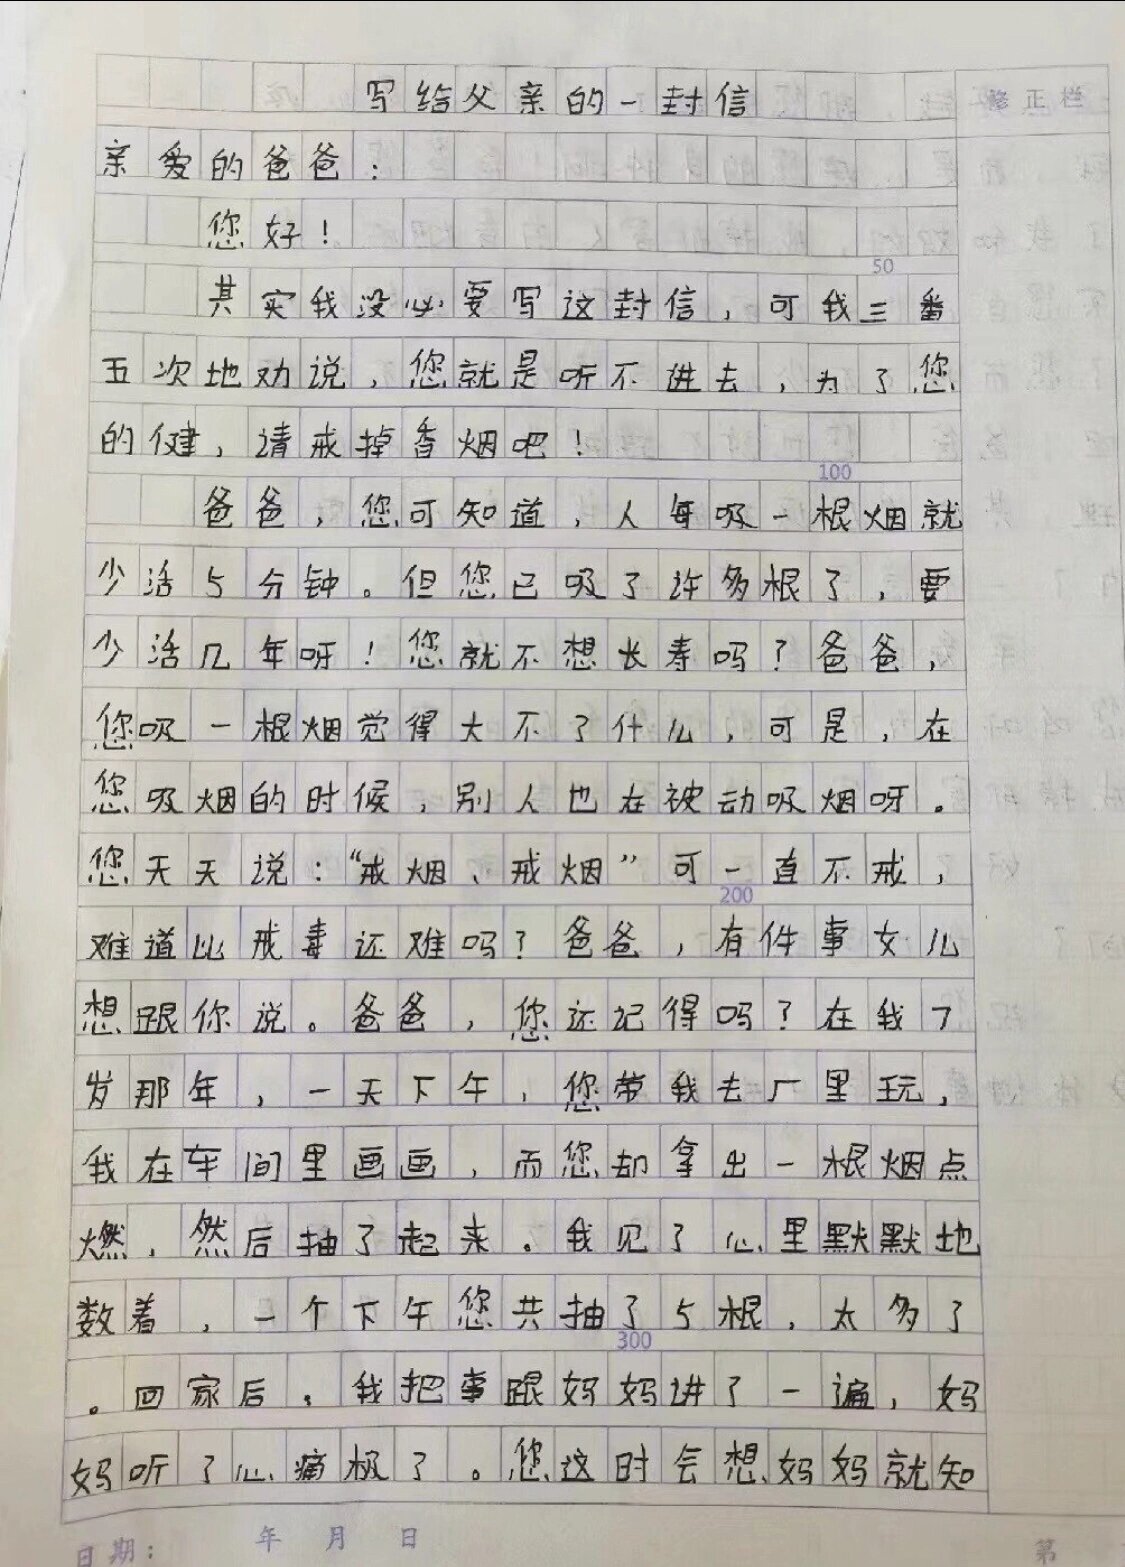 写给父亲的一封信
修正栏
亲爱的爸爸：
您好！
50
其实我没必要写这封信，可我三番
五次地劝说，您就是听不进去，为了您
的健，请戒掉香烟吧！
100
爸爸，您可知道，人每吸一根烟就
少活5分钟。但您已吸了许多根了，要
少活几年呀！您就不想长寿吗？爸爸，
您吸一根烟觉得大不了什么，可是，在
您吸烟的时候，别人也在被动吸烟呀。
您天天说：“戒烟、戒烟”可一直不戒，
200
难道比戒毒还难吗？爸爸，有件事女儿
想跟你说。爸爸，您还记得吗？在我7
岁那年，一天下午，您带我去厂里玩，
我在车间里画画，而您却拿出一根烟点
燃，然后抽了起来。我见了心里默默地
数着，一个下午您共抽了5根，太多了
300
。回家后，我把事跟妈妈讲了一遍，妈
妈听了心痛极了。您这时会想妈妈就知
日期： 年 月 日
第